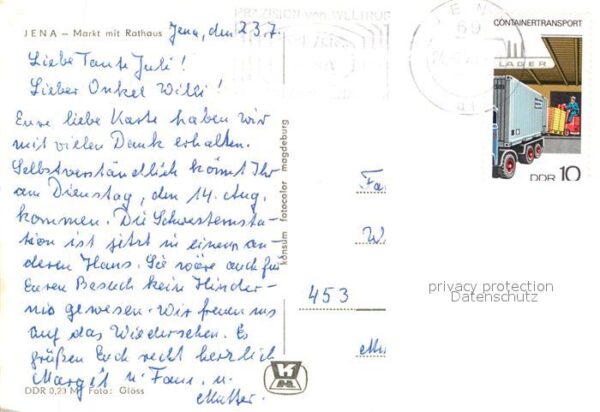 JENA – Markt mit Rathaus
Jena, den 23.7.
Liebe Tante Juli!
Lieber Onkel Willi!
Eure liebe Karte haben wir
mit vielen Dank erhalten.
Selbstverständlich könnt Ihr
am Dienstag, den 14. Aug.
kommen. Die Schwesternsta-
tion ist jetzt in einem an-
deren Haus. Sie wäre auch für
Euren Besuch kein Hinder-
nis gewesen. Wir freuen uns
auf das Wiedersehen. Es
grüßen Euch recht herzlich
Margit u. Fam. u.
Mutter.
DDR 0,20 M Foto: Glöss
konsum fotocolor magdeburg
PRÄZISION von WELTRUF
JEN
69
CONTAINERTRANSPORT
LAGER
DDR 10
Fa
W
453
privacy protection
Datenschutz